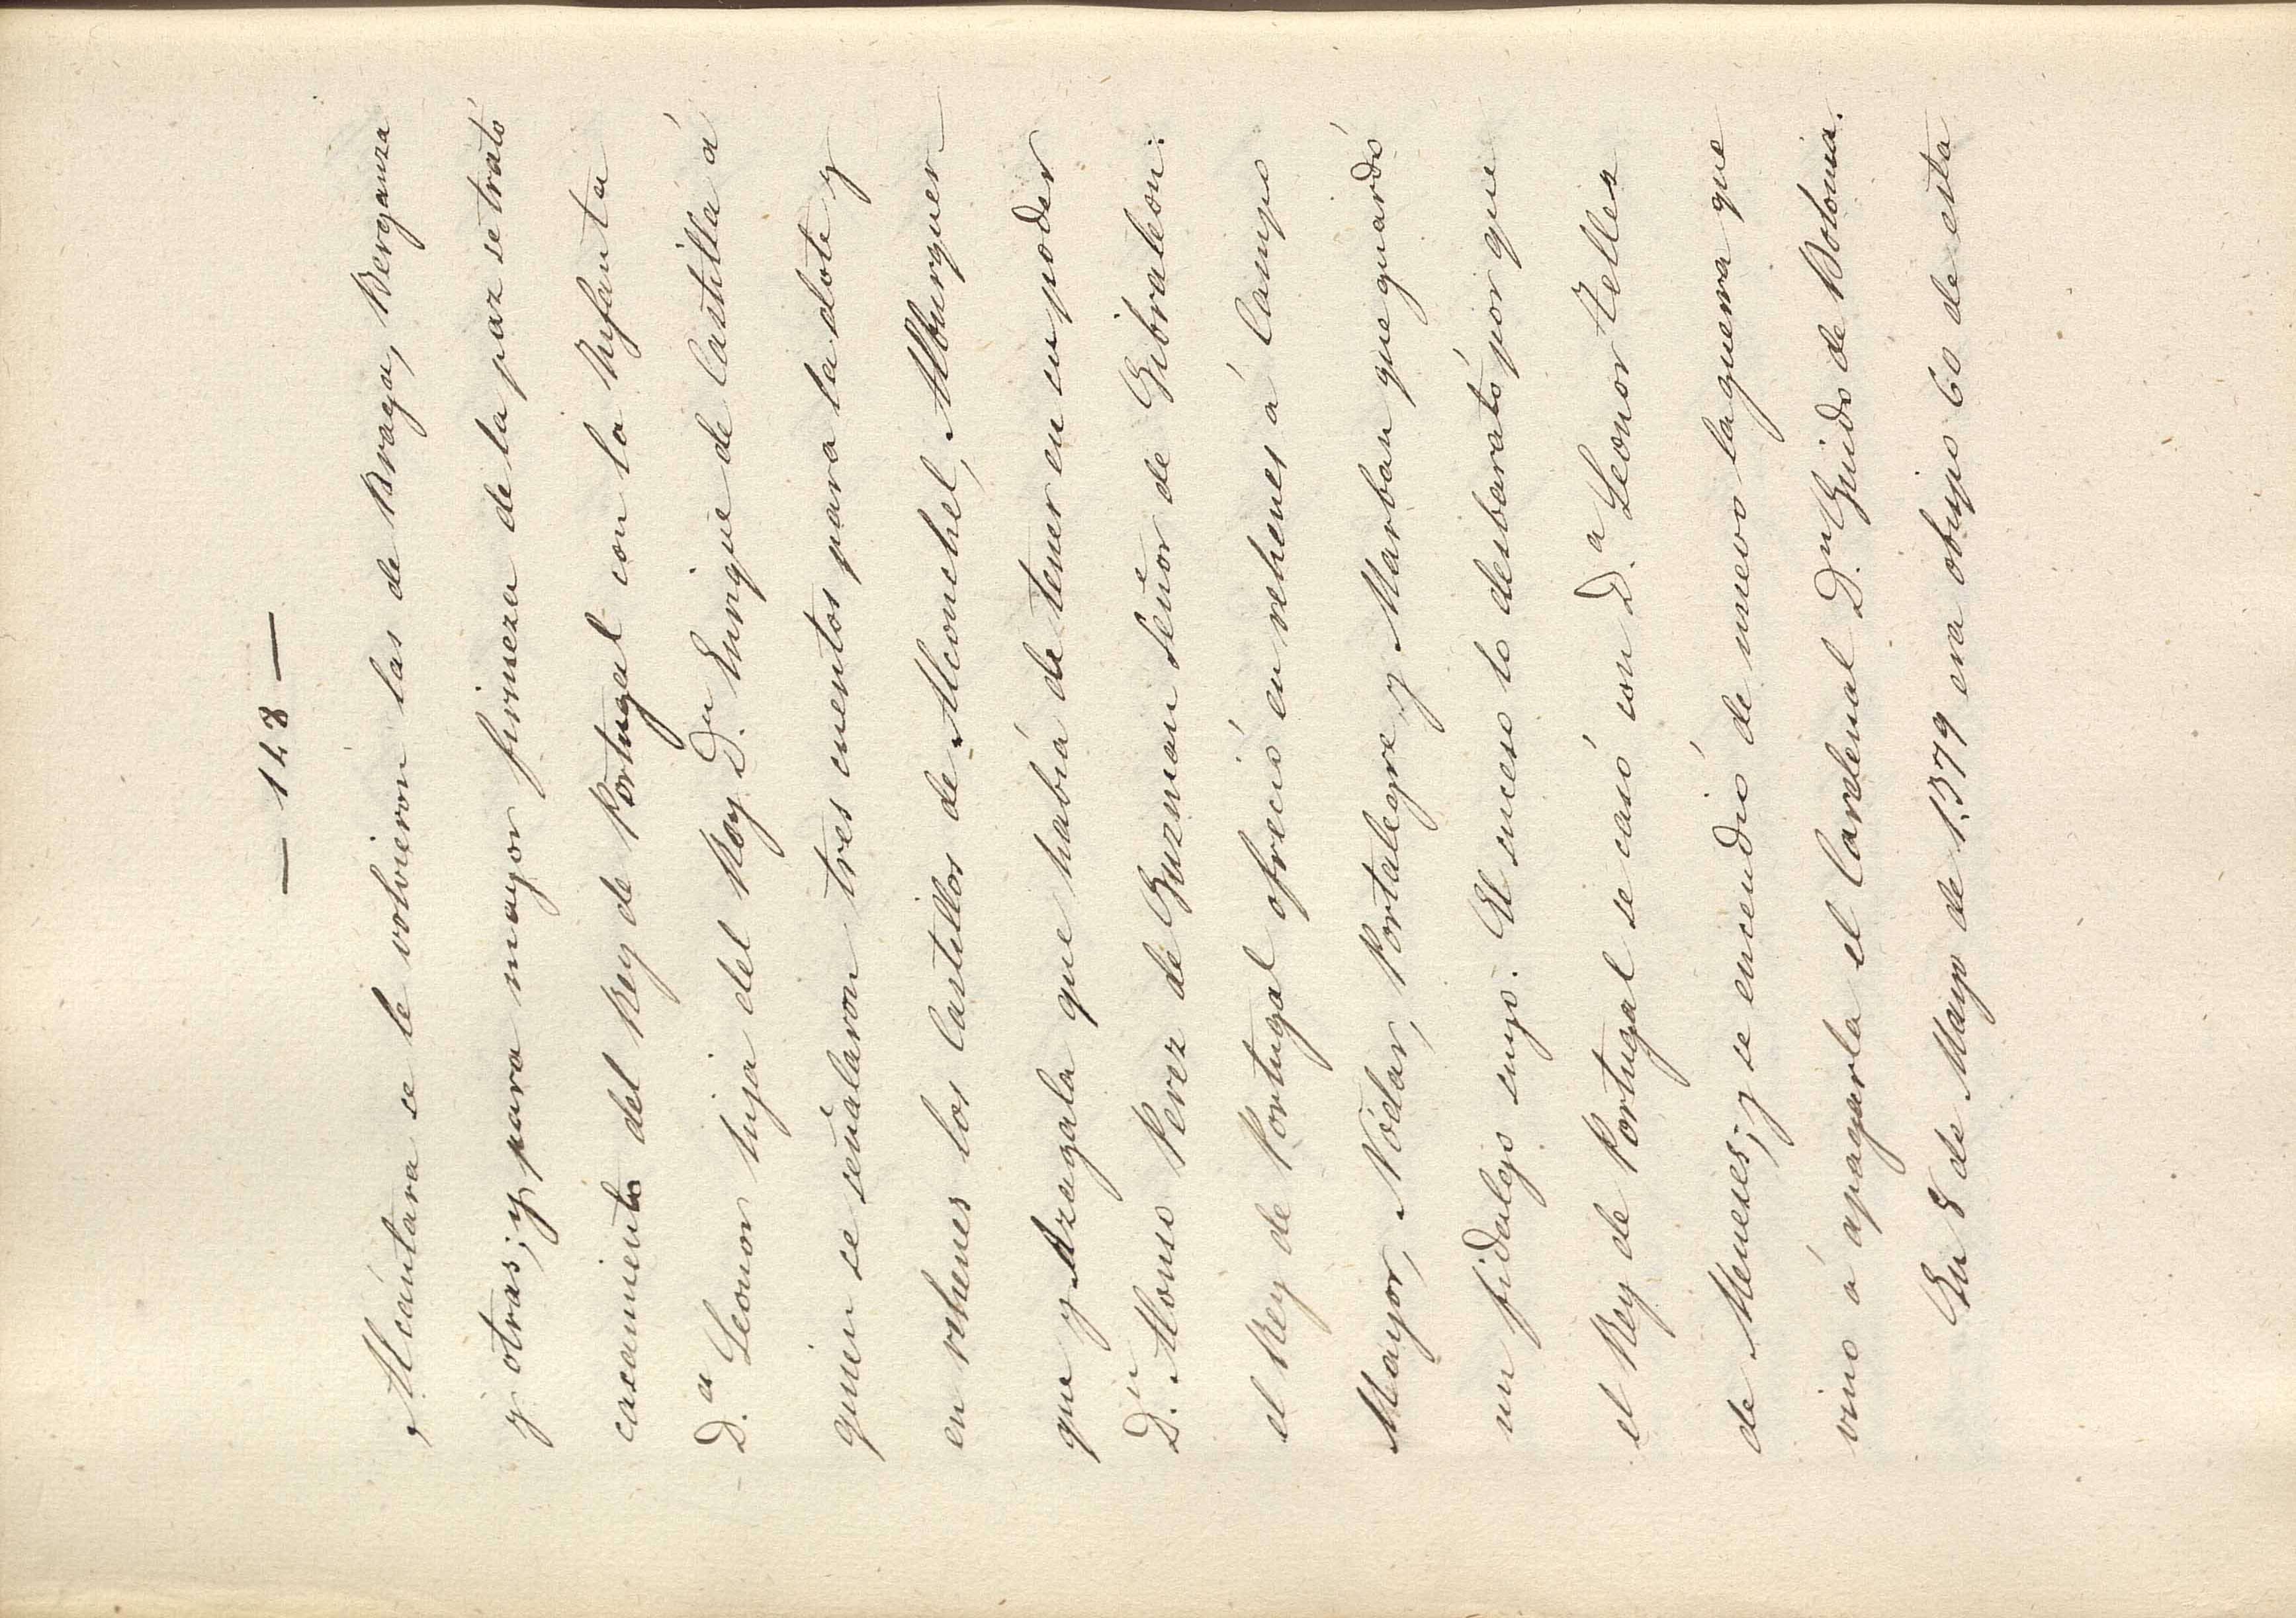 — 148 —
Alcántara se le volvieron las de Braga, Berganza
y otras; y para mayor firmeza de la paz se trató
casamiento del Rey de Portugal con la Infanta
D.ª Leonor hija del Rey D.n Enrique de Castilla á
quien se señalaron tres cuentos para la dote y
en rehenes los Castillos de Alconchel, Alburquer
que y Azagala que habia de tener en su poder
D.n Alonso Perez de Guzman Señor de Gibraleon:
el Rey de Portugal ofreció en rehenes á Campo
Mayor, Nódar, Portalegre y Marban que guardó
un fidalgo suyo. El suceso lo desbarató por que
el Rey de Portugal se casó con D.ª Leonor Tellez
de Meneses; y se encendió de nuevo la guerra que
vino á apagarla el Cardenal D.n Guido de Bolonia.
En 8 de Mayo de 1.379 era obispo 60 de esta